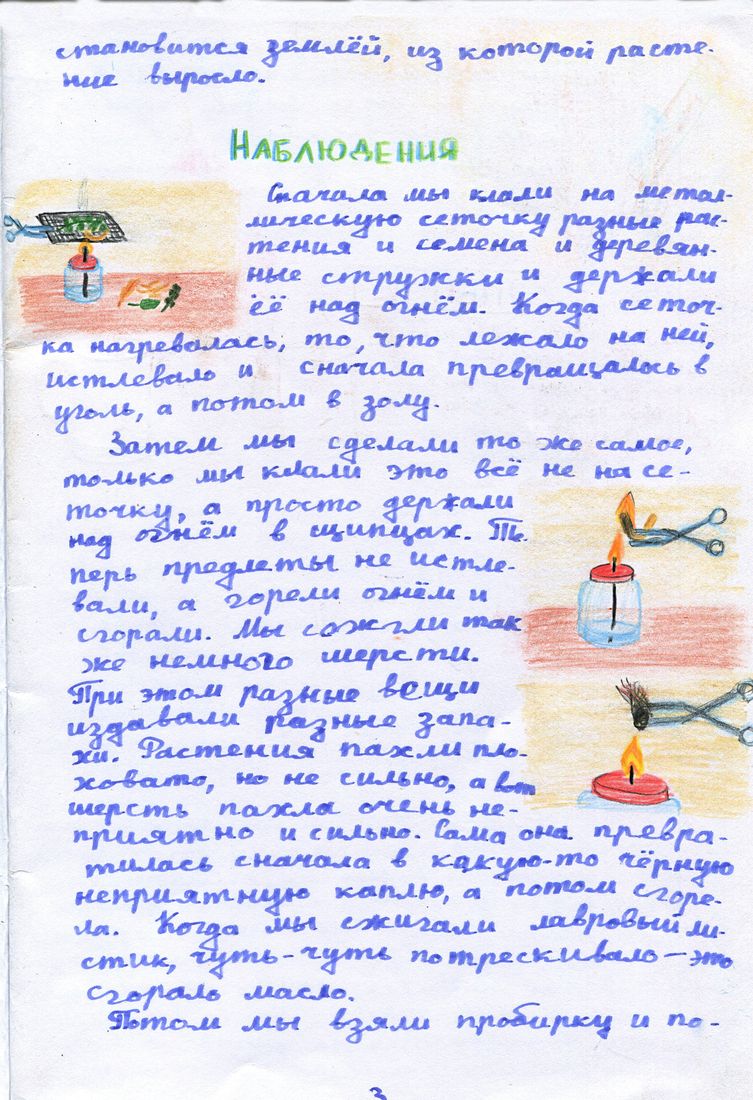 становится землёй, из которой расте-
ние выросло.
НАБЛЮДЕНИЯ
Сначала мы клали на метал-
лическую сеточку разные рас-
тения и семена и деревян-
ные стружки и держали
её над огнём. Когда сеточ-
ка нагревалась, то, что лежало на ней,
истлевало и сначала превращалось в
уголь, а потом в золу.
Затем мы сделали то же самое,
только мы клали это всё не на се-
точку, а просто держали
над огнём в щипцах. Те-
перь предметы не истле-
вали, а горели огнём и
сгорали. Мы сожгли так
же немного шерсти.
При этом разные вещи
издавали разные запа-
хи. Растения пахли пло-
ховато, но не сильно, а вот
шерсть пахла очень не-
приятно и сильно. Сама она превра-
тилась сначала в какую-то чёрную
неприятную каплю, а потом сгоре-
ла. Когда мы сжигали лавровый ли-
стик, чуть-чуть потрескивало – это
сгораль масло.
Потом мы взяли пробирку и по-
3